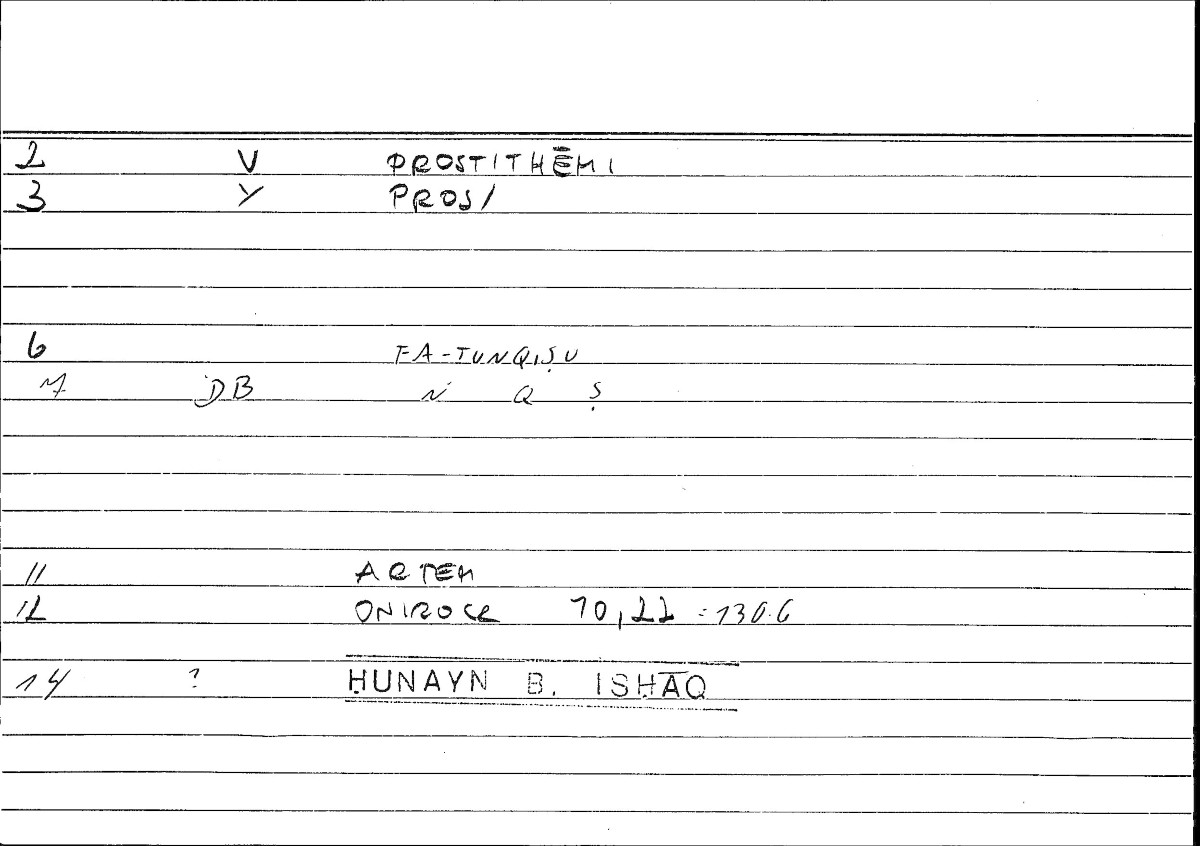 2 V PROSTITHĒMI
3 Y PROS/
6 FA-TUNQIṢU
7 DB N Q Ṣ
11 ARTEM
12 ONIROCR 70,22 = 130.6
14 ? ḤUNAYN B. ISḤĀQ